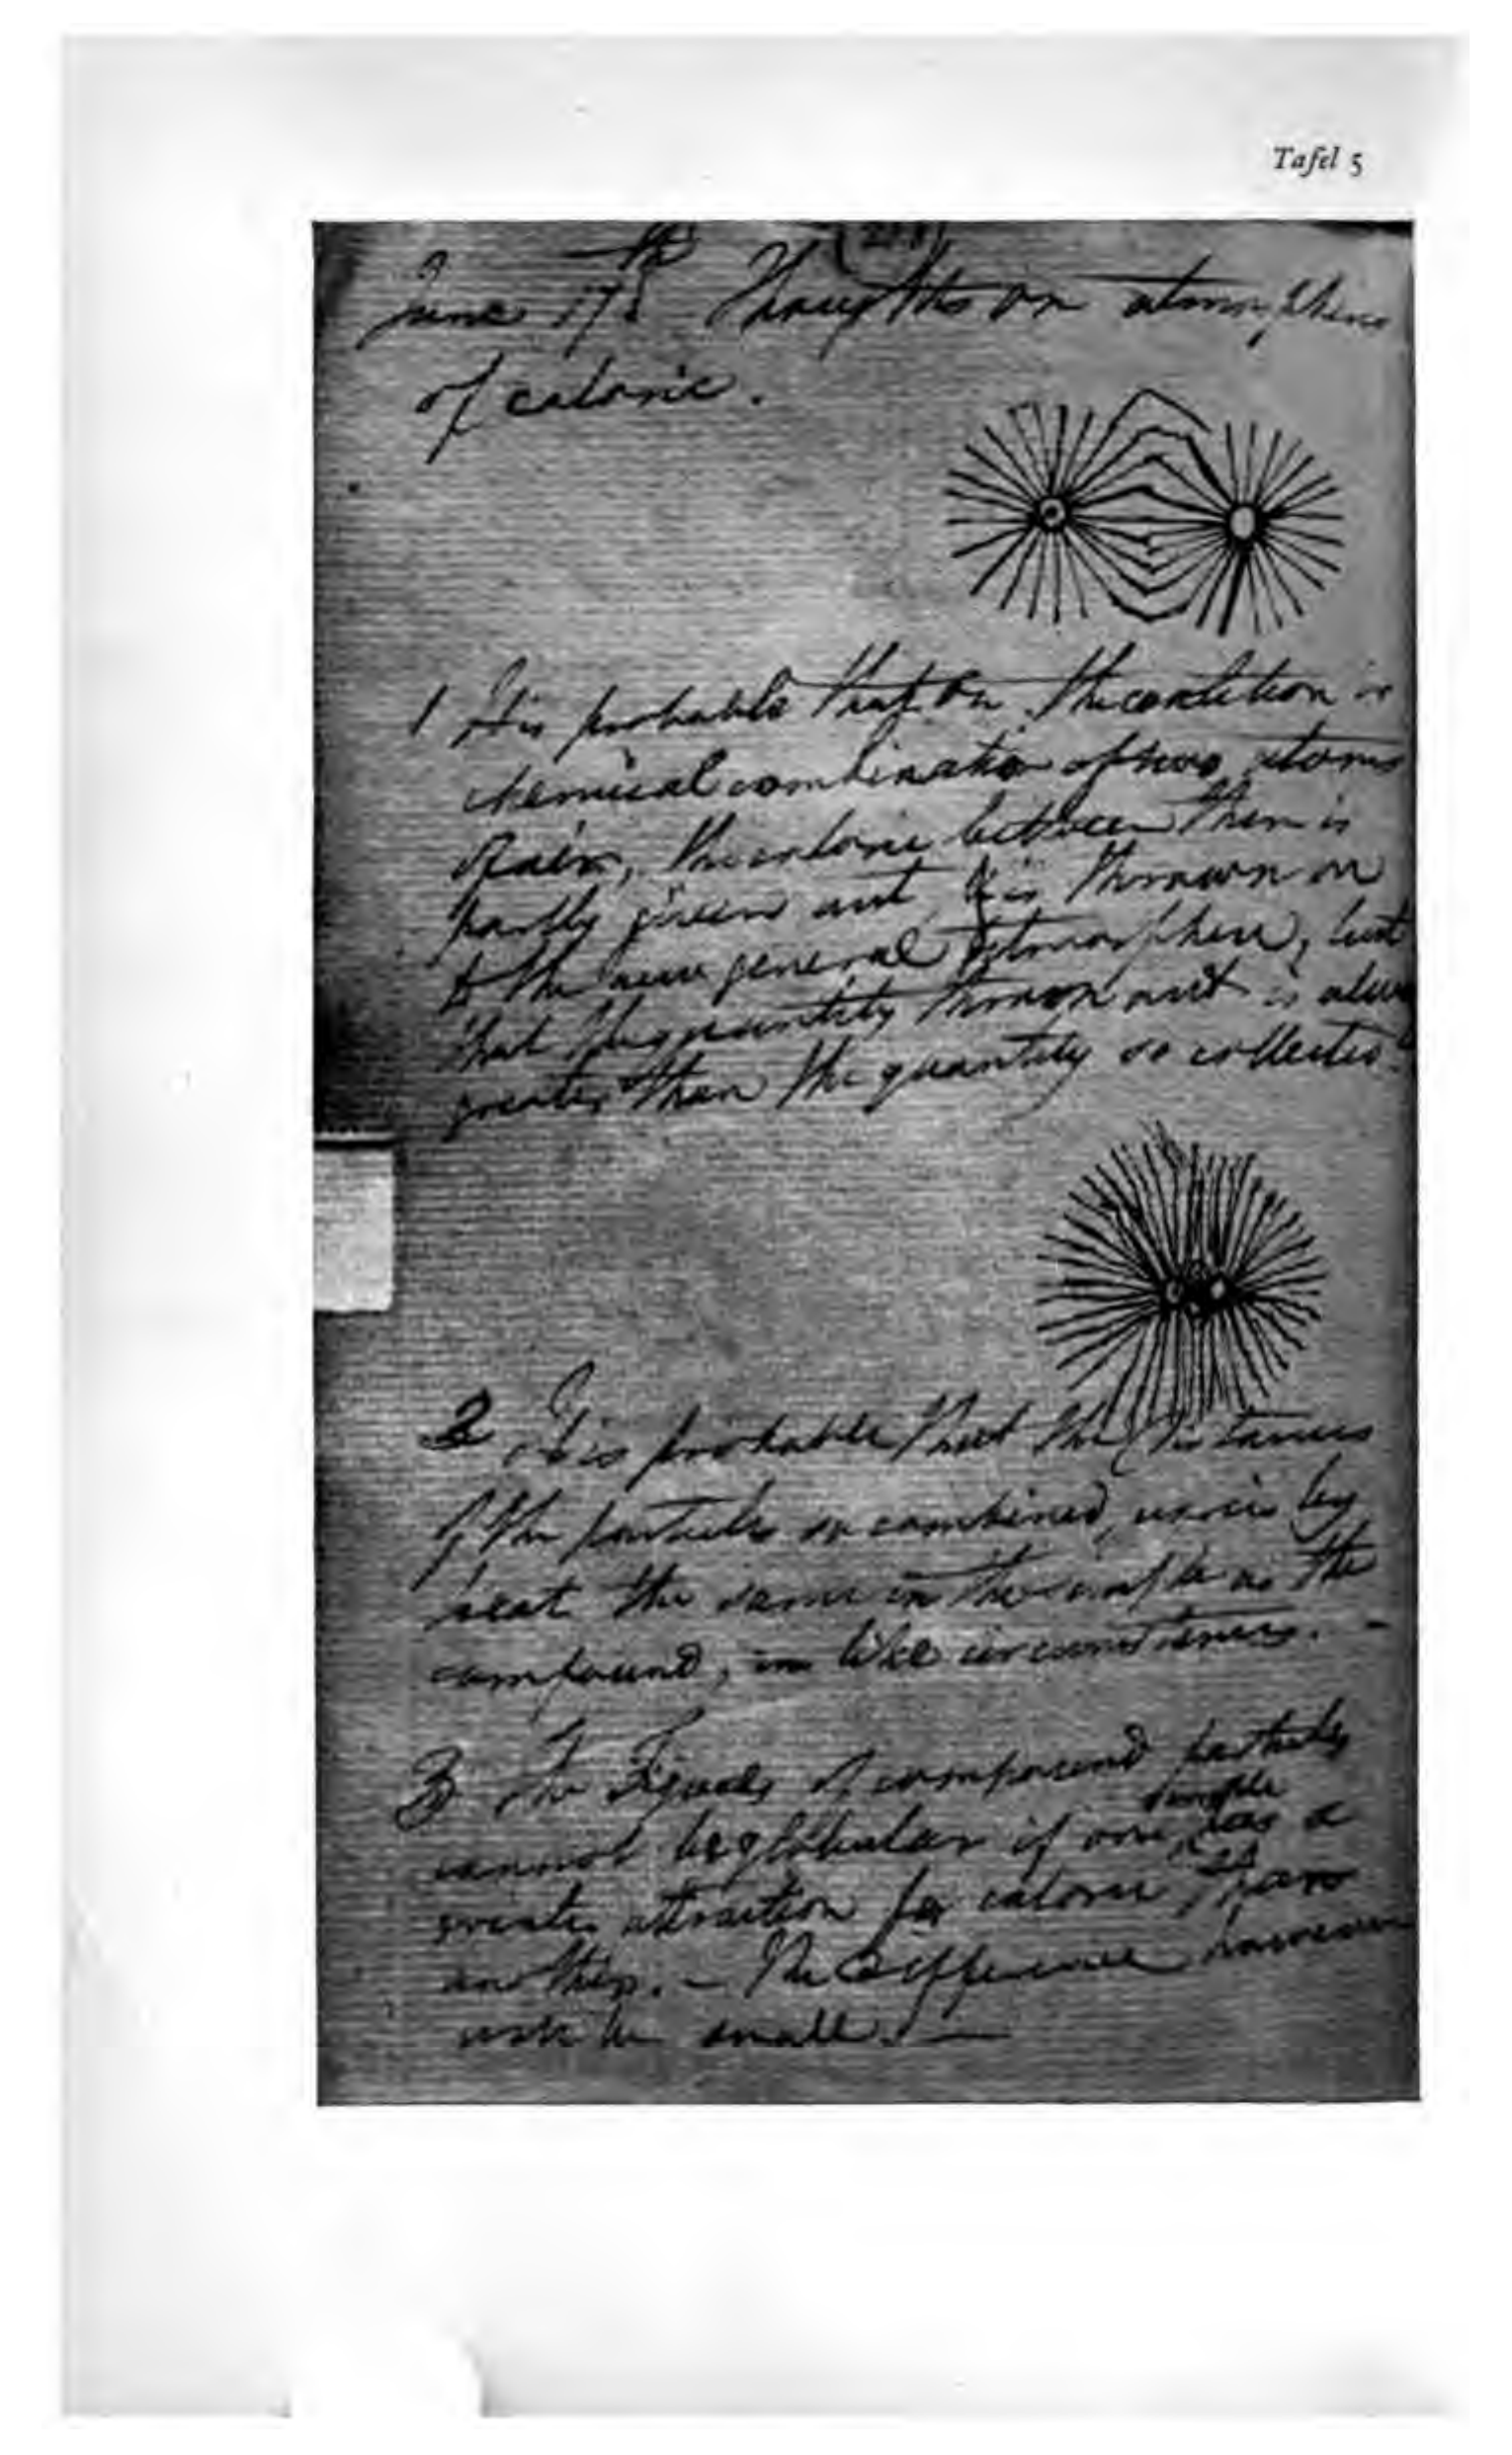 Tafel 5
(248)
June 17th Thoughts on atmospheres
of caloric.
1 It is probable that on the coalition or
chemical combination of two atoms
of air, the caloric between them is
partly given out & is thrown on
to the new general atmosphere, but
that the quantity thrown out is alwa
greater than the quantity so collected.
2 It is probable that the distances
of the particles so combined, by
heat the same in the simple as the
compound, in like circumstances. —
3 The Figures of compound particles
simple
cannot be globular if one has a
greater attraction for caloric than
another. — The difference however
will be small. —